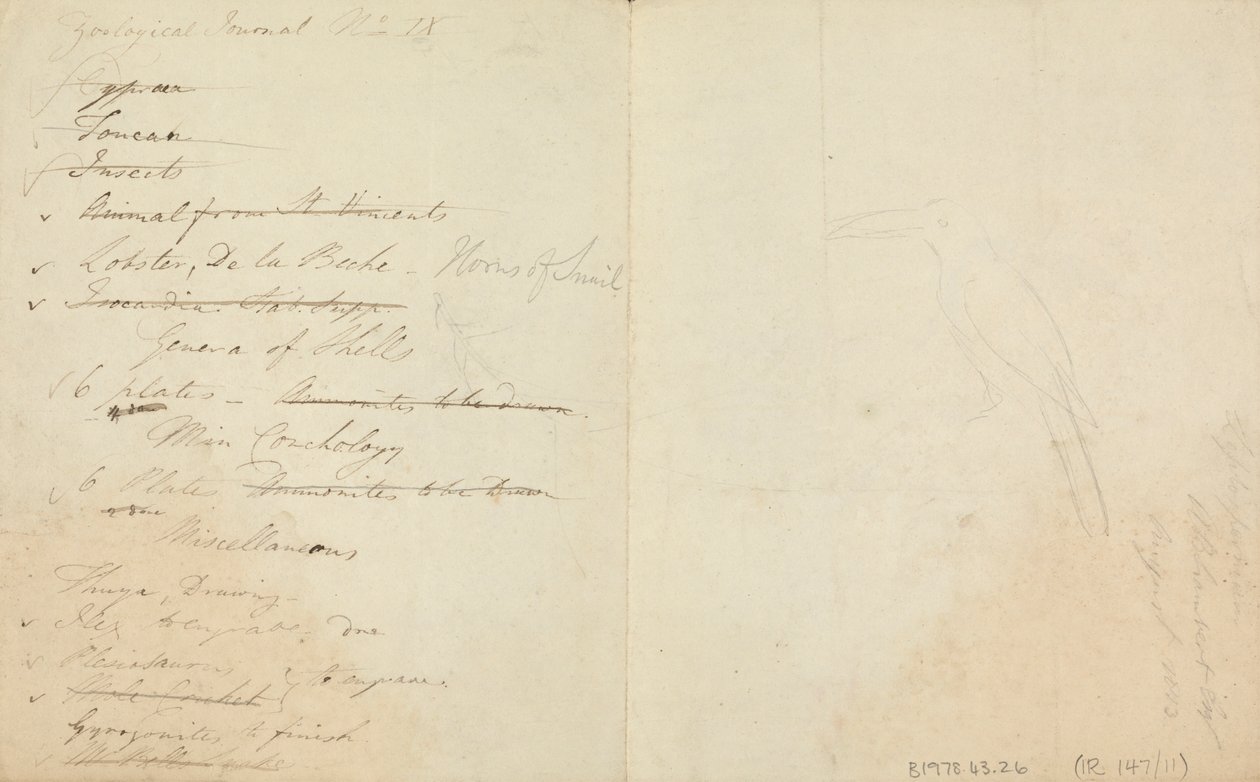 Zoological Journal No IX
Cypraea
Toucan
Insects
Animal from St Vincents
Lobster, De la Beche - Horns of Snail
Isocardia. Hab. Supp.
Genera of Shells
6 plates - Ammonites to be drawn.
Min Conchology
6 Plates Ammonites to be Drawn
2 done
Miscellaneous
Thuya, Drawing -
Ilex to engrave. done
Plesiosaurus
Mole Cricket } to engrave.
Gyrogonites to finish.
Mr Bells Snake
A B Lambert Esq
August
B1978.43.26 (IR 147/11)